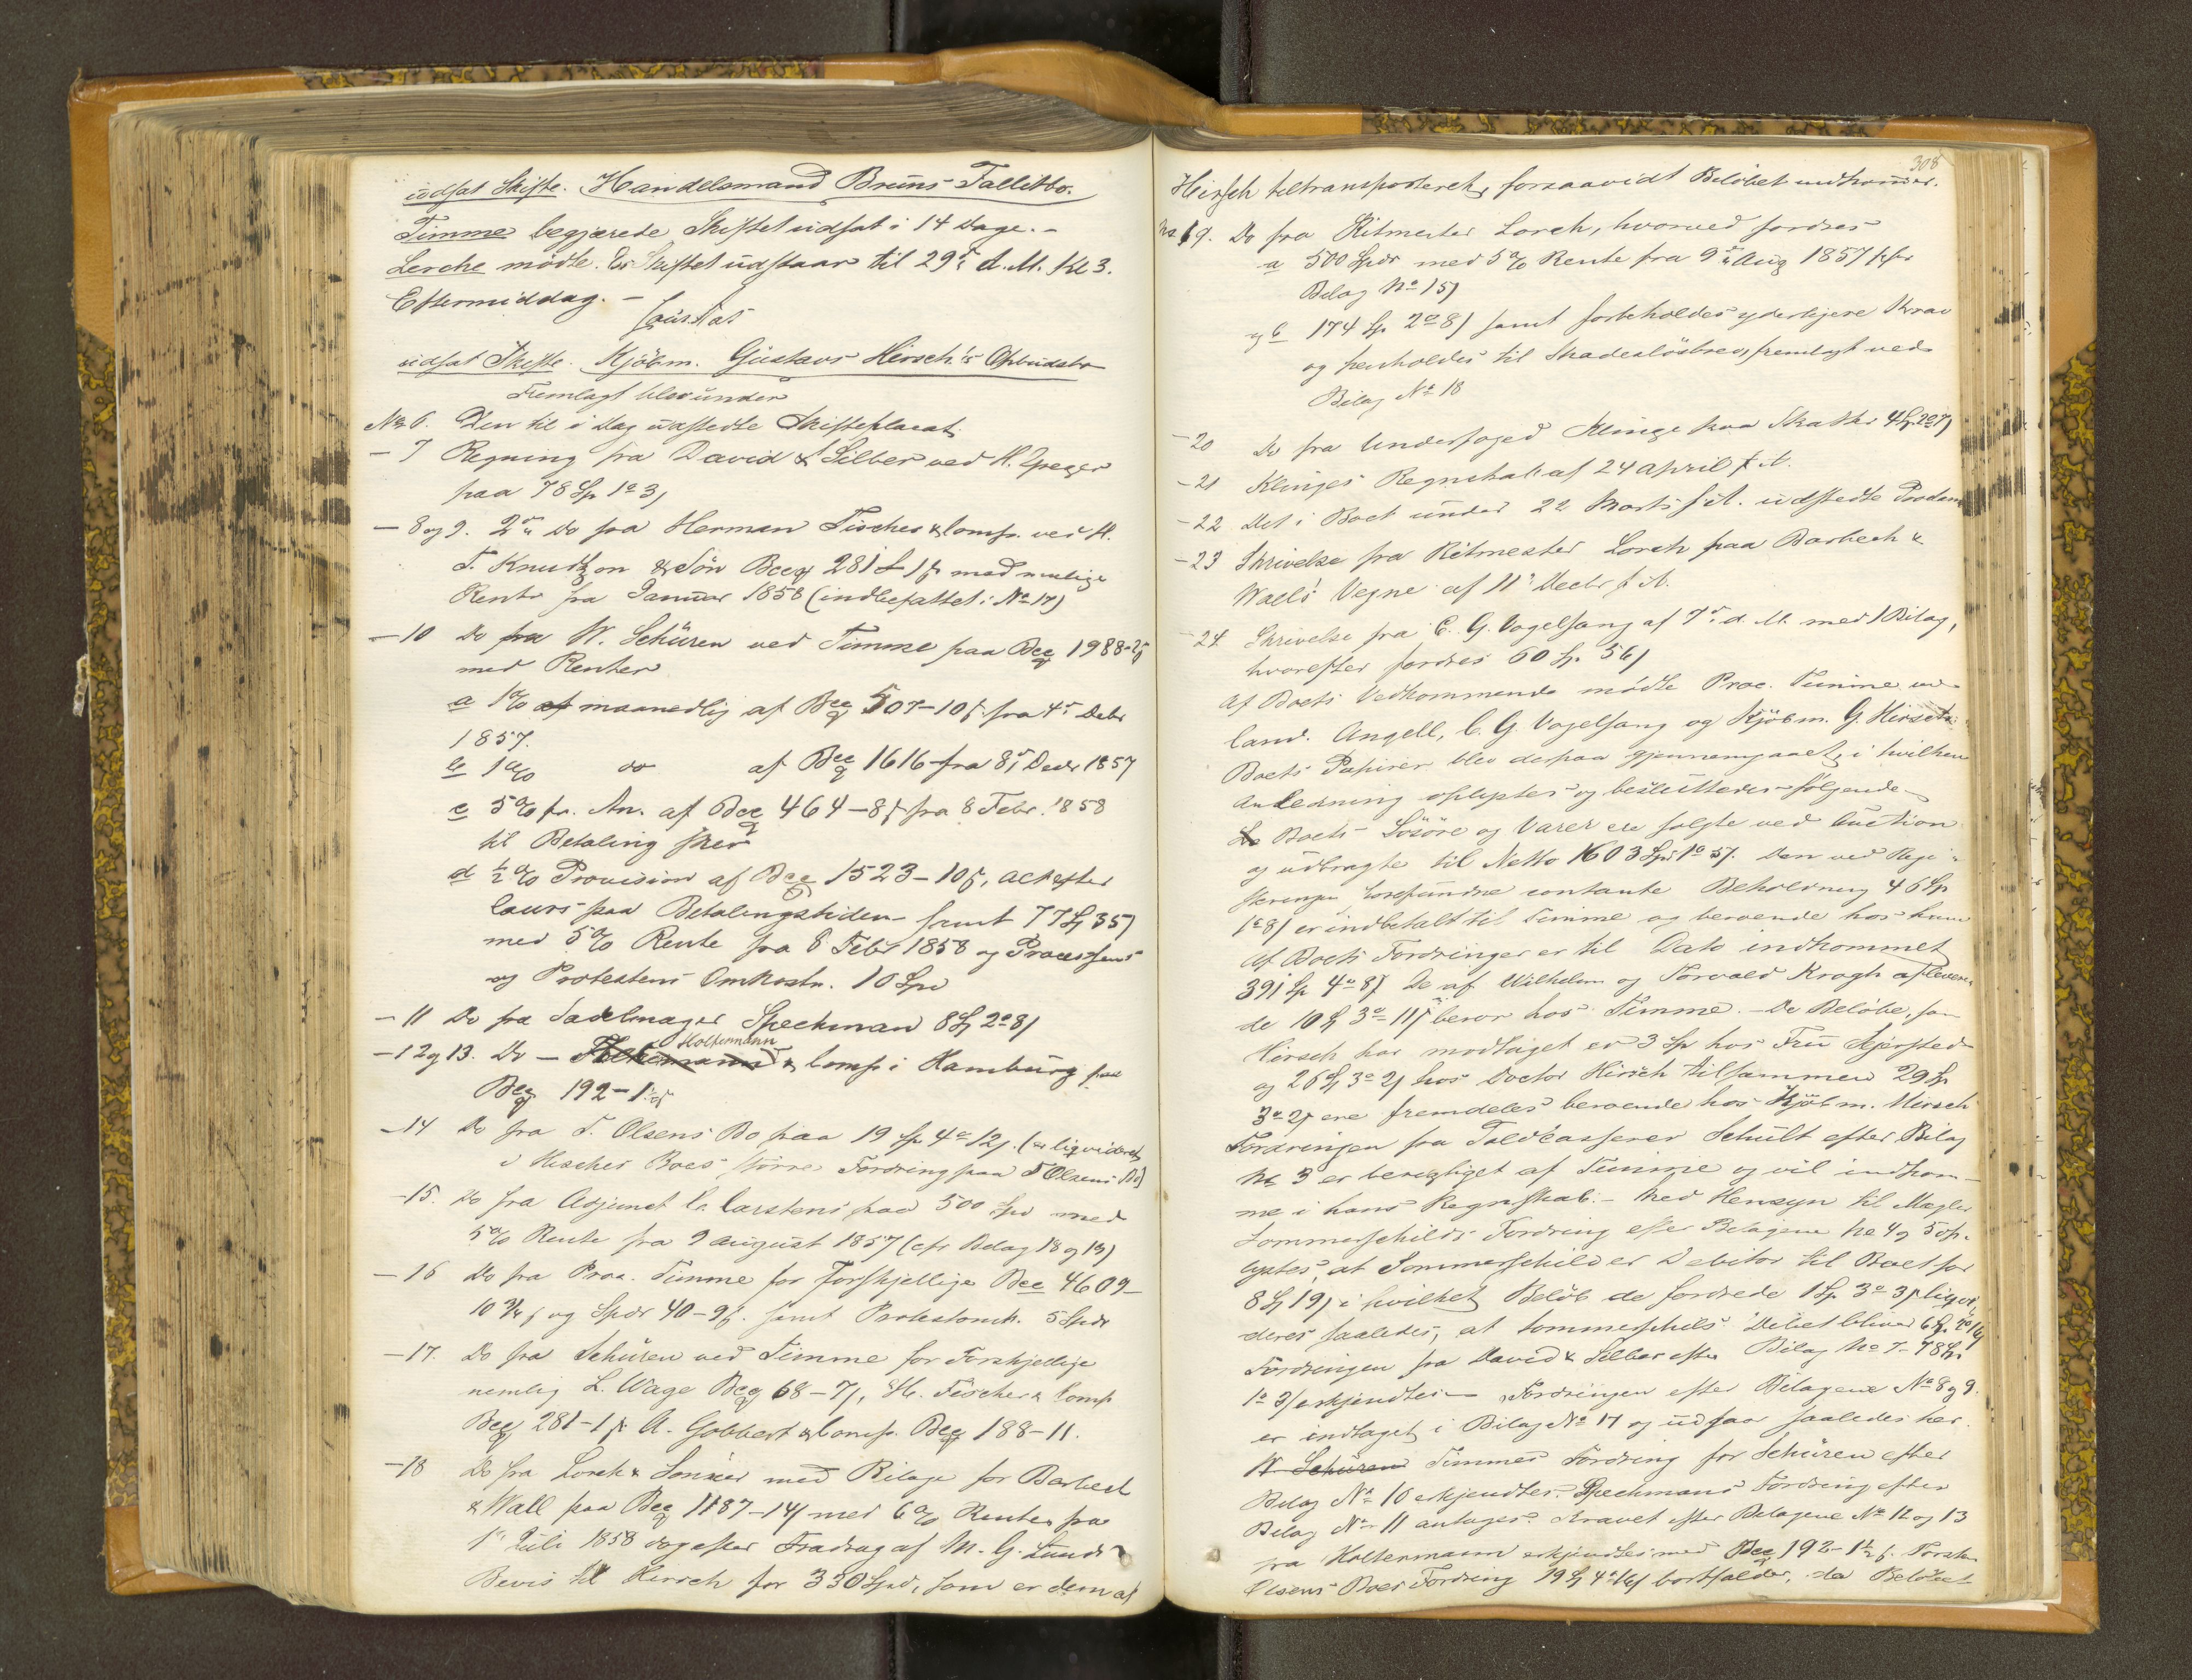 udsat Skifte. Handelsmand Bruns Fallitbo.
Timme begjærede Skiftet udsat i 14 Dage. -
Lerche mödte. Skiftet udstaar til 29de d. M. Kl 3.
Eftermiddag. -
udsat Skifte. Kjöbm. Gustavs Hirsch's Opbudsbo
Fremlagt blev under
No 6. Den til i Dag udstedte Skifteplacat
- 7 Regning fra David & Silber ved H.
paa 78 Sp 1 o 3 /
- 8 og 9. 2de Do fra Herman Fischer & Comp. ved H.
T. Knudtzon & Sön Bco 281 1 f med muelige
Renter fra Januar 1858 (indbefattet i No 17)
- 10 Do fra W. Schüren ved Timme paa Bco 1988-
med Renter
a 1 % af maanedlig af Bco 507-10 f. fra 4de Debr
1857.
b 1 % do af Bco 1616 fra 8de Decbr 1857
c 5 % pr. An. af Bco 464-8 f fra 8 Febr. 1858
til Betaling skeer
d ½ % Provision af Bco 1523-10 f, alt efter
Cours paa Betalingstiden samt 77 Sp 35 /
med 5 % Rente fra 8 Febr 1858 og Processens
og Protestens Omkostn. 10 Spd
- 11 Do fra Sadelmager Speckman 8 Sp 2 o 8 /
Holtermann
- 12 og 13. Do - & Comp i Hamburg paa
Bco 192 - 1½ f
- 14 Do fra T. Olsens Bo paa 19 Sp 4 o 12 /. (er liqvideret
i Hirsches Boes större Fordring paa T Olsens Bo)
- 15. Do fra Adjunct C. Carstens paa 500 Spd med
5 % Rente fra 9 August 1857 (cfr Bilag 18 og 19)
- 16 Do fra Proc. Timme for Forskjellige Bco 4609-
10 ¾ f og Spdr 40-9 f. samt Protestomk. 5 Spdr
- 17. Do fra Schüren ved Timme for Forskjellige
nemlig L. Wage Bco 68-7 /, H. Fischer & Comp
Bco 281-1 f A. Gobbert & Comp. Bco 188-11.
- 18 Do fra Lorch & med Bilage for Barbeck
& Wall paa Bco 1187-14 / med 6 % Renter fra
1ste Juli 1858 dog efter Fradrag af M. G. Lunds
Bevis til Hirsch for 330 Spd, som er dem af
308
Hirsch tiltransporteret, forsaavidt Belöbet indkommer.
No 19. Do fra Ritmester Lorch, hvorved fordres
a 500 Spdr med 5 % Rente fra 9de Aug 1857 (cfr
Bilag No 15)
og b 174 Sp. 2 o 8 / samt forbeholdes yderligere Krav
og henholdes til Skadeslösbrev, fremlagt ved
Bilag No 18
- 20 Do fra Underfoged Klinge paa Skatter 4 Sp.
- 21 Klinges Regnskab af 24 April f. A.
- 22 Det i Boet under 22 Marts f. A. udstedte Proclam
- 23 Skrivelse fra Ritmester Lorch paa Barbech &
Walls Vegne af 11te Decbr f. A.
- 24 Skrivelse fra C. G. Vogelsang af 7de d. M. med 1 Bilag,
hvorefter fordres 60 Sp. 56 /
Af Boets Vedkommende mödte Proc. Timme ved
Cand. Angell, C. G. Vogelsang og Kjöbm. G. Hirsch.
Boets Papirer blev derpaa gjennemgaaet, i hvilken
Anledning oplystes og besluttedes fölgende
Boets Lösöre og Varer ere solgte ved Auction
og udbragte til Netto 1603 Spd 1 o 5 /. Den ved Regi-
streringen forefundne contante Beholdning 46 Sp
1 o 8 / er indbetalt til Timme og beroende hos ham
Af Boets Fordringer er til Dato indkommet
391 Sp 4 o 8 / De af Wilhelm og Torvald Krogh aflevere-
de 10 Sp 3 o 11 / beror hos Timme. - De Belöbe, som
Hirsch har modtaget er 3 Sp hos Fru
og 26 Sp 3 o 2 / hos Doctor Hirsch tilsammen 29 Sp
3 o 2 / ere fremdeles beroende hos Kjöbm. Hirsch
Fordringen fra Toldcasserer Schult efter Bilag
No 3 er berigtiget af Timme og vil indkom-
me i hans Regnskab. - Med Hensyn til Mægler
Sommerschilds Fordring efter Bilagene No 4 og 5 op-
lystes, at Sommerschild er Debitor til Boet for
8 Sp 19 / i hvilket Belöb de fordrede 1 Sp. 3 o 3 / liqvi-
deres saaledes, at Sommerschilds Debet bliver 6 Sp.
Fordringen fra David & Silber efter Bilag No 7 - 78 Sp.
1 o 3 / erkjendtes - Fordringen efter Bilagene No 8 og 9.
er indtaget i Bilag No 17 og udgaar saaledes her.
W. Schüren Timmes Fordring for Schüren efter
Bilag No 10 erkjendtes. Speckmans Fordring efter
Bilag No 11 antages. Kravet efter Bilagene No 12 og 13
fra Holtermann erkjendtes med Bco 192-1½ f. Torsten
Olsens Boes Fordring 19 Sp 4 o 16 / bortfalder, da Belöbet